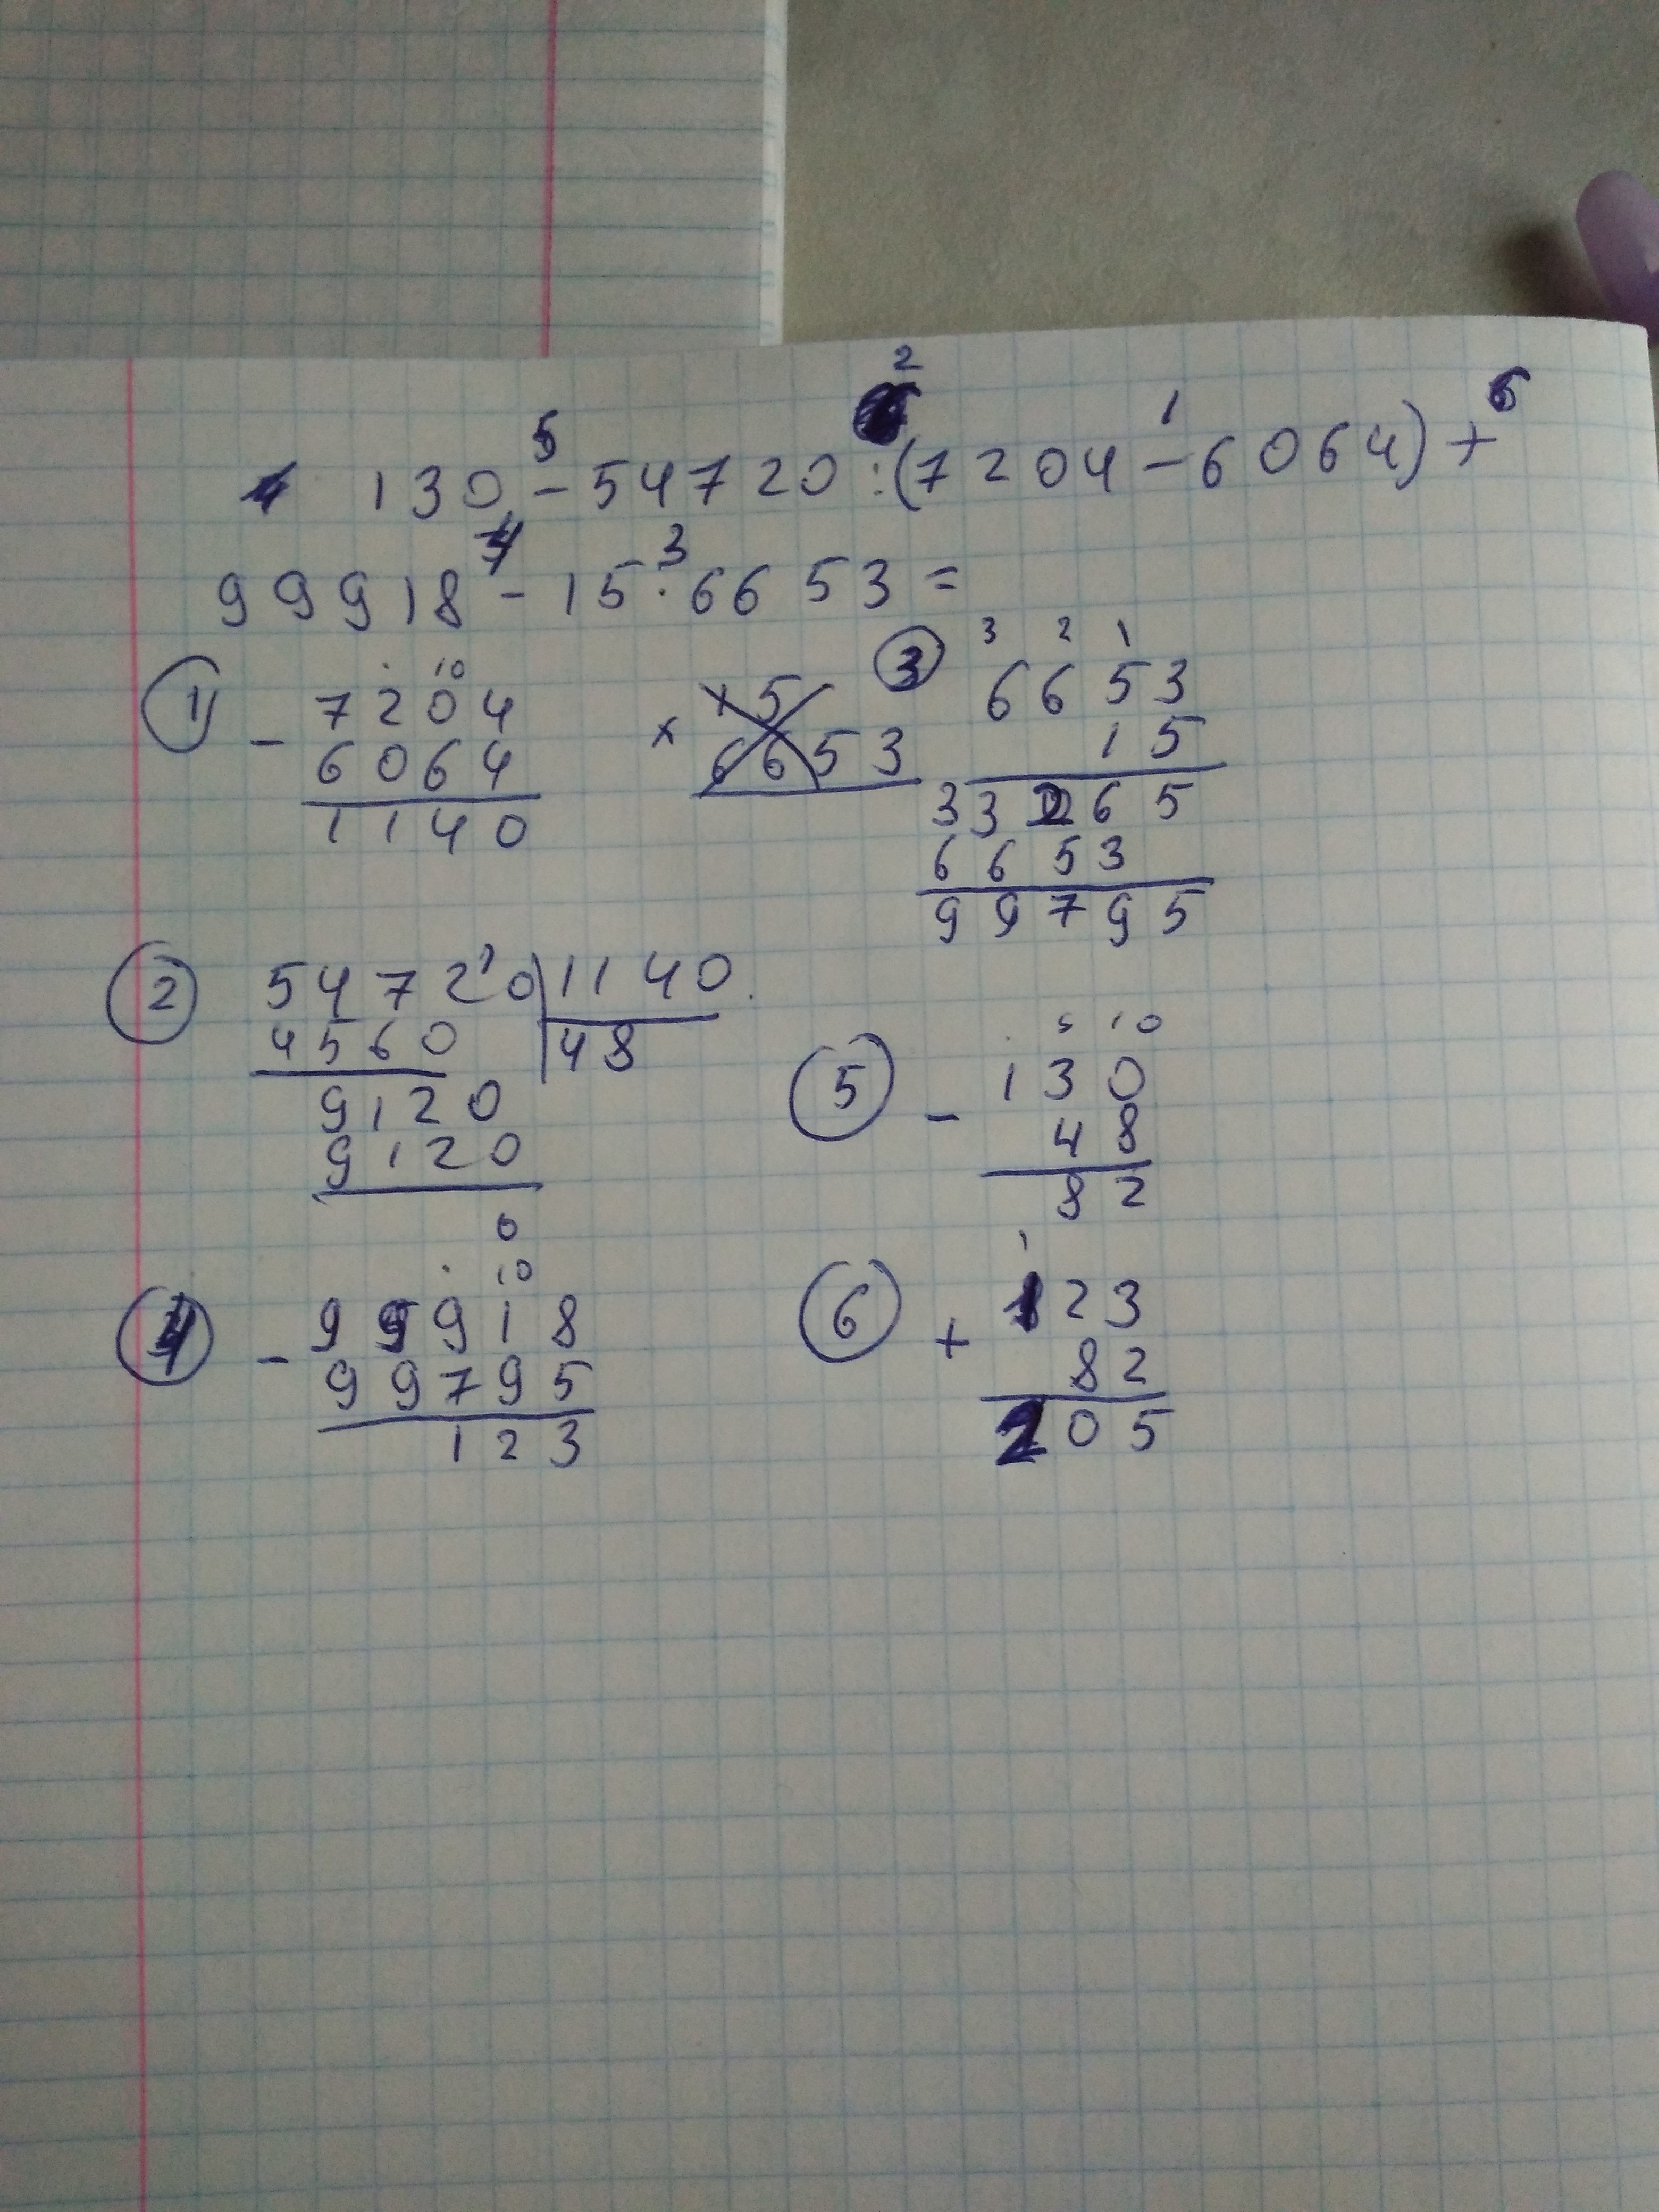 2
5 1 6
130 - 54720 : (7204 - 6064) +
4 3
99918 - 15 · 6653 =
① 10
- 7204
6064
1140
× 15
6653
③ 3 2 1
6653
15
33265
6653
99795
② 54720 | 1140
4560 48
9120
9120
0
⑤ 10
- 130
48
82
④ 10
- 99918
99795
123
⑥ 1
+ 123
82
205